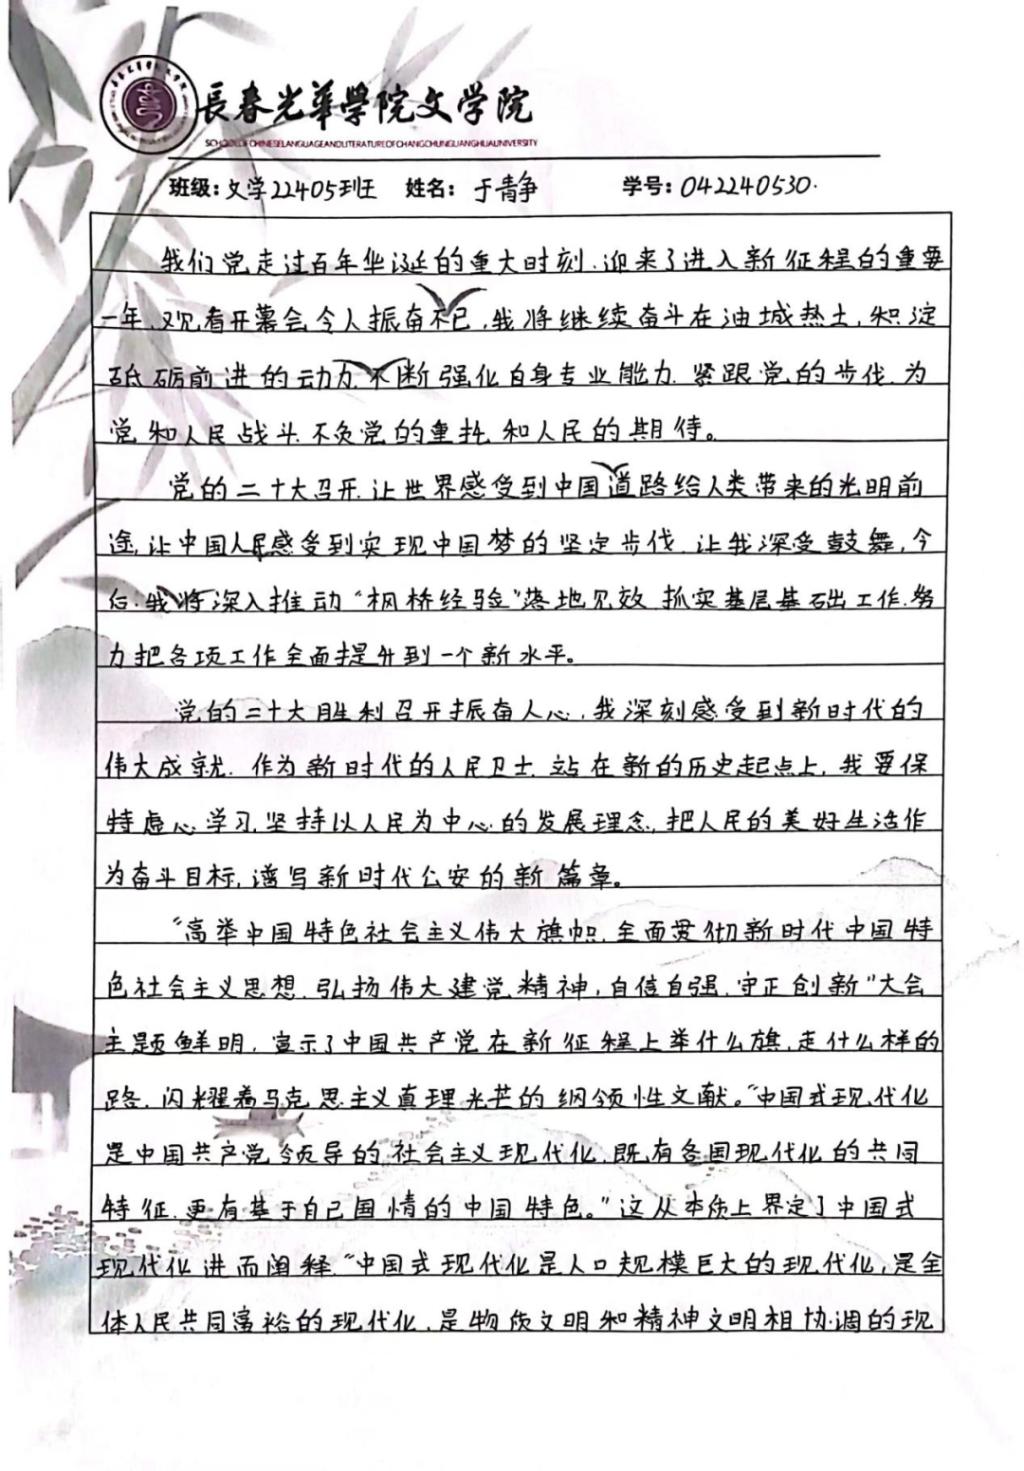 長春光華學院文学院
SCHOOL OF CHINESE LANGUAGE AND LITERATURE OF CHANGCHUN GUANGHUA UNIVERSITY
班级:文学22405班 姓名:于靖争 学号:042240530.
我们党走过百年华诞的重大时刻,迎来了进入新征程的重要
一年,观看开幕会令人振奋不已,我将继续奋斗在油城热土,积淀
砥砺前进的动力,不断强化自身专业能力,紧跟党的步伐,为
党和人民战斗,不负党的重托和人民的期待。
党的二十大召开,让世界感受到中国道路给人类带来的光明前
途,让中国人民感受到实现中国梦的坚定步伐,让我深受鼓舞,今
后,我将深入推动“枫桥经验”落地见效,抓实基层基础工作,努
力把各项工作全面提升到一个新水平。
党的二十大胜利召开振奋人心,我深刻感受到新时代的
伟大成就,作为新时代的人民卫士,站在新的历史起点上,我要保
持虚心学习,坚持以人民为中心的发展理念,把人民的美好生活作
为奋斗目标,谱写新时代公安的新篇章。
“高举中国特色社会主义伟大旗帜,全面贯彻新时代中国特
色社会主义思想,弘扬伟大建党精神,自信自强,守正创新”大会
主题鲜明,宣示了中国共产党在新征程上举什么旗,走什么样的
路,闪耀着马克思主义真理光芒的纲领性文献。“中国式现代化
是中国共产党领导的社会主义现代化,既有各国现代化的共同
特征,更有基于自己国情的中国特色。”这从本质上界定了中国式
现代化,进而阐释:“中国式现代化是人口规模巨大的现代化,是全
体人民共同富裕的现代化,是物质文明和精神文明相协调的现